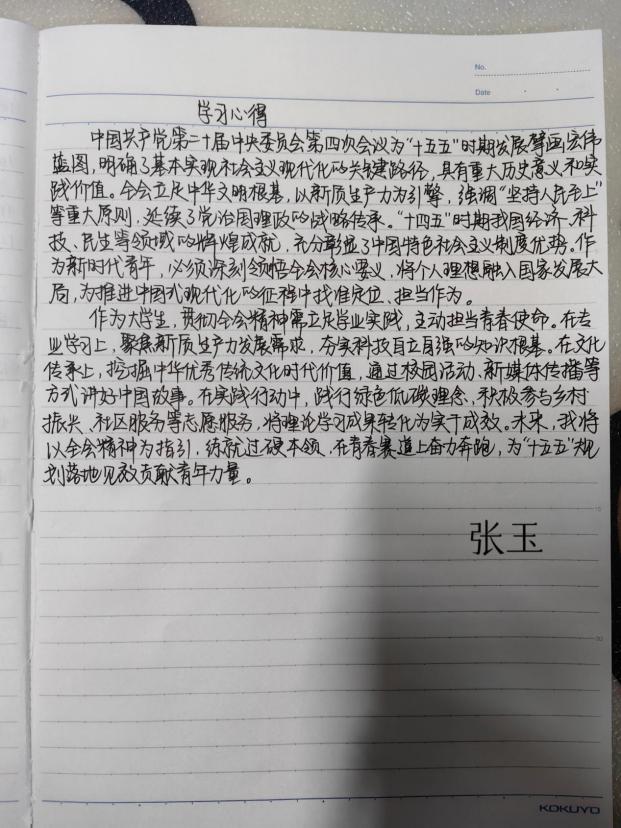 No.
Date
学习心得
中国共产党第二十届中央委员会第四次会议为“十五五”时期发展擘画宏伟
蓝图，明确了基本实现社会主义现代化的关键路径，具有重大历史意义和实
践价值。全会立足中华文明根基，以新质生产力为引擎，强调“坚持人民至上”
等重大原则，延续了党治国理政的战略传承。“十四五”时期我国经济、科
技、民生等领域的辉煌成就，充分彰显了中国特色社会主义制度优势。作
为新时代青年，必须深刻领悟全会核心要义，将个人理想融入国家发展大
局，为推进中国式现代化的征程中找准定位、担当作为。
作为大学生，贯彻全会精神需立足学业实践，主动担当青春使命。在专
业学习上，聚焦新质生产力发展需求，夯实科技自立自强的知识根基。在文化
传承上，挖掘中华优秀传统文化时代价值，通过校园活动、新媒体传播等
方式讲好中国故事。在实践行动中，践行绿色低碳理念，积极参与乡村
振兴、社区服务等志愿服务，将理论学习成果转化为实干成效。未来，我将
以全会精神为指引，练就过硬本领，在青春赛道上奋力奔跑，为“十五五”规
划落地见效贡献青年力量。
张玉
KOKUYO